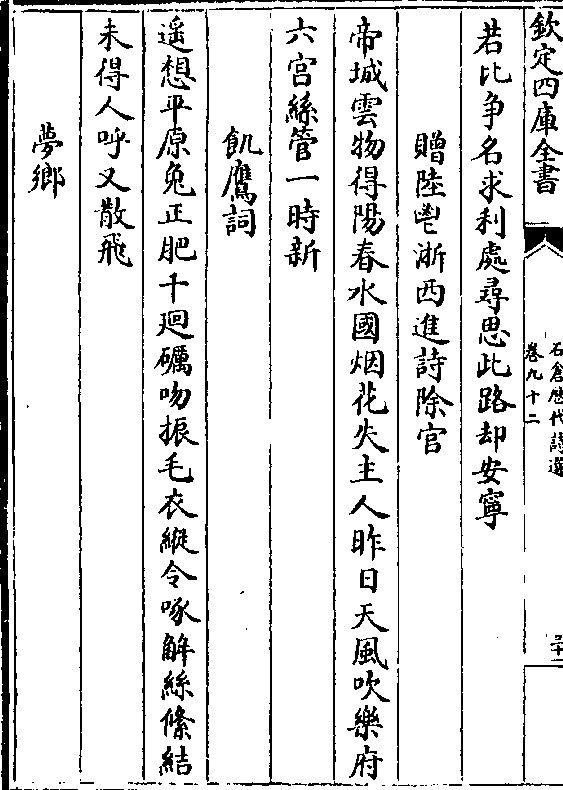 欽定四庫全書
石倉歴代詩選
卷九十二
二十二
若比争名求利處尋思此路却安寧
贈陸鬯浙西進詩除官
帝城雲物得陽春水國烟花失主人昨日天風吹樂府
六宫絲管一時新
飢鷹詞
遥想平原兔正肥千廻礪吻振毛衣縱令啄解絲絛結
未得人呼又散飛
夢鄉